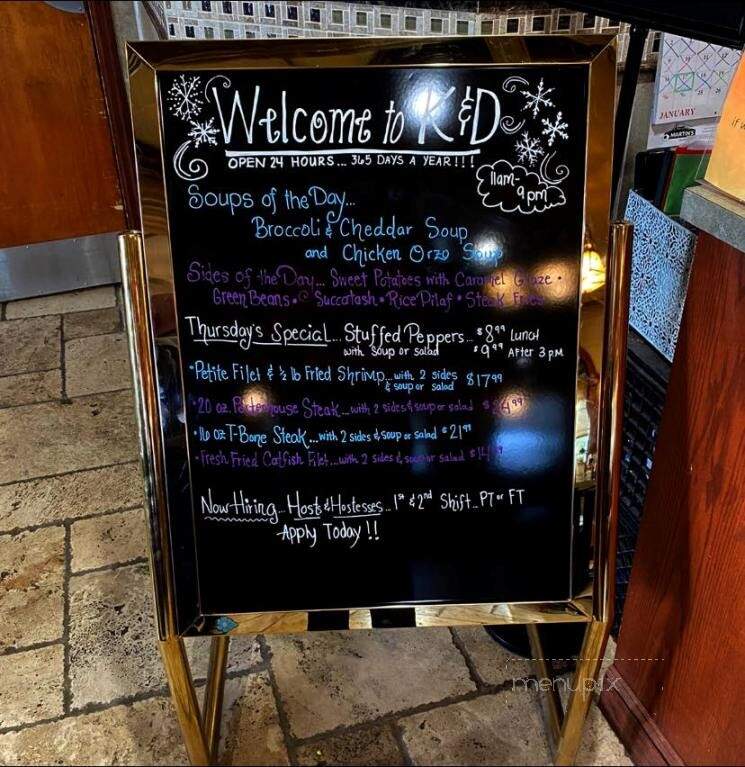 Welcome to K&D
OPEN 24 HOURS... 365 DAYS A YEAR!!!
11am-
9pm
Soups of the Day...
Broccoli & Cheddar Soup
and Chicken Orzo Soup
Sides of the Day... Sweet Potatoes with Caramel Glaze •
Green Beans • Succatash • Rice Pilaf • Steak Fries
Thursday's Special... Stuffed Peppers... $8.99 Lunch
with Soup or salad $9.99 After 3 pm
• Petite Filet & ½ lb Fried Shrimp... with 2 sides $17.99
& soup or salad
• 20 oz. Porterhouse Steak... with 2 sides & soup or salad
• 16 oz T-Bone Steak... with 2 sides & soup or salad $21.99
• Fresh Fried Catfish Filet... with 2 sides & soup or salad
Now Hiring... Hosts & Hostesses... 1st & 2nd Shift... PT or FT
Apply Today!!
JANUARY
MARTIN'S
menupix